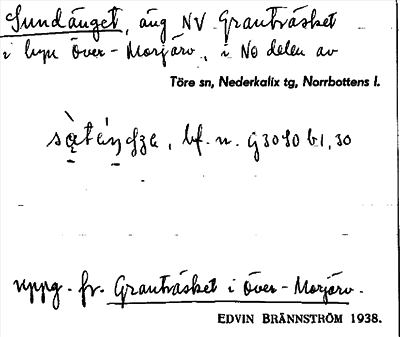 Sundänget, äng NV Granträsket
i byn Över-Morjärv, i No delen av
Töre sn, Nederkalix tg, Norrbottens l.
bf. n.
uppg. fr. Granträsket i Över-Morjärv.
EDVIN BRÄNNSTRÖM 1938.